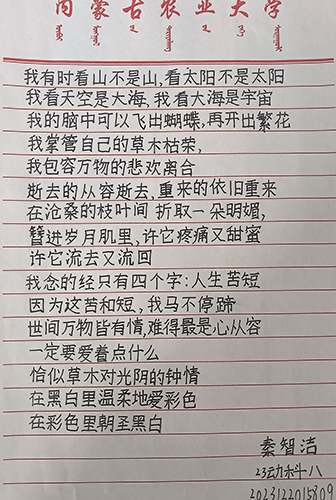 内蒙古农业大学
我有时看山不是山,看太阳不是太阳
我看天空是大海,我看大海是宇宙
我的脑中可以飞出蝴蝶,再开出繁花
我掌管自己的草木枯荣,
我包容万物的悲欢离合
逝去的从容逝去,重来的依旧重来
在沧桑的枝叶间 折取一朵明媚,
簪进岁月肌里,许它疼痛又甜蜜
许它流去又流回
我念的经只有四个字:人生苦短
因为这苦和短,我马不停蹄
世间万物皆有情,难得最是心从容
一定要爱着点什么
恰似草木对光阴的钟情
在黑白里温柔地爱彩色
在彩色里朝圣黑白
秦智洁
23动科十八
2023122015809